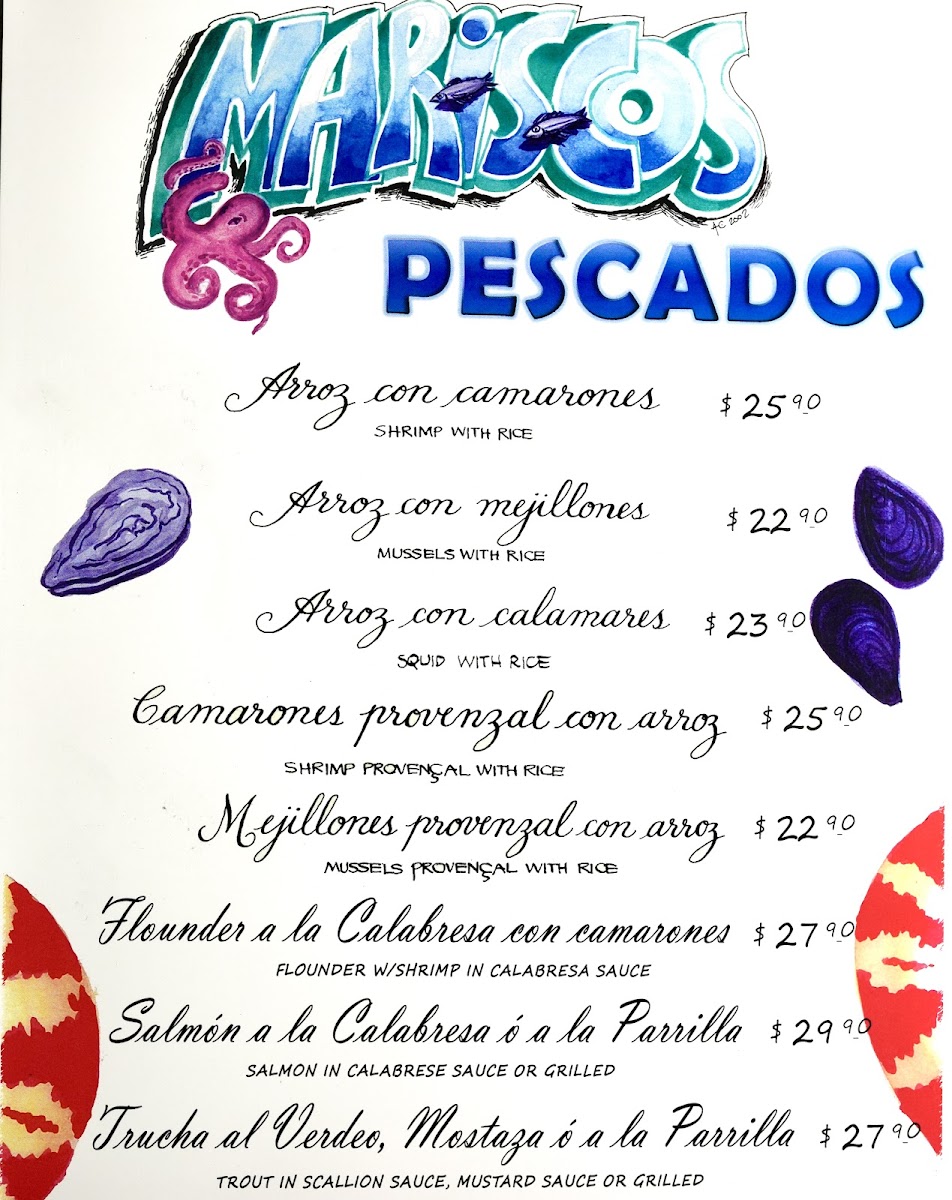 MARiSCOS
AC 2002
PESCADOS
Arroz con camarones $25.90
SHRIMP WITH RICE
Arroz con mejillones $22.90
MUSSELS WITH RICE
Arroz con calamares $23.90
SQUID WITH RICE
Camarones provenzal con arroz $25.90
SHRIMP PROVENÇAL WITH RICE
Mejillones provenzal con arroz $22.90
MUSSELS PROVENÇAL WITH RICE
Flounder a la Calabresa con camarones $27.90
FLOUNDER W/SHRIMP IN CALABRESA SAUCE
Salmón a la Calabresa ó a la Parrilla $29.90
SALMON IN CALABRESE SAUCE OR GRILLED
Trucha al Verdeo, Mostaza ó a la Parrilla $27.90
TROUT IN SCALLION SAUCE, MUSTARD SAUCE OR GRILLED